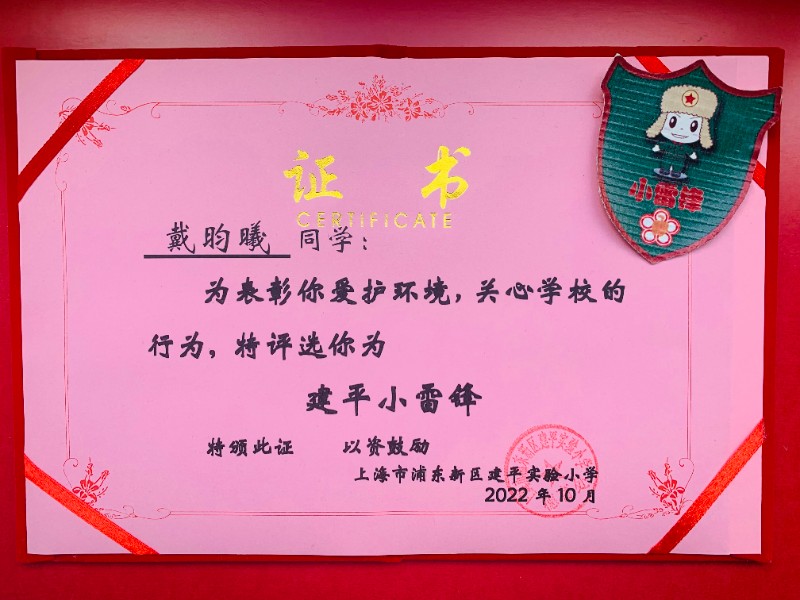 证 书
CERTIFICATE
小雷锋
戴昀曦 同学：
为表彰你爱护环境，关心学校的
行为，特评选你为
建平小雷锋
特颁此证 以资鼓励
上海市浦东新区建平实验小学
2022 年 10 月